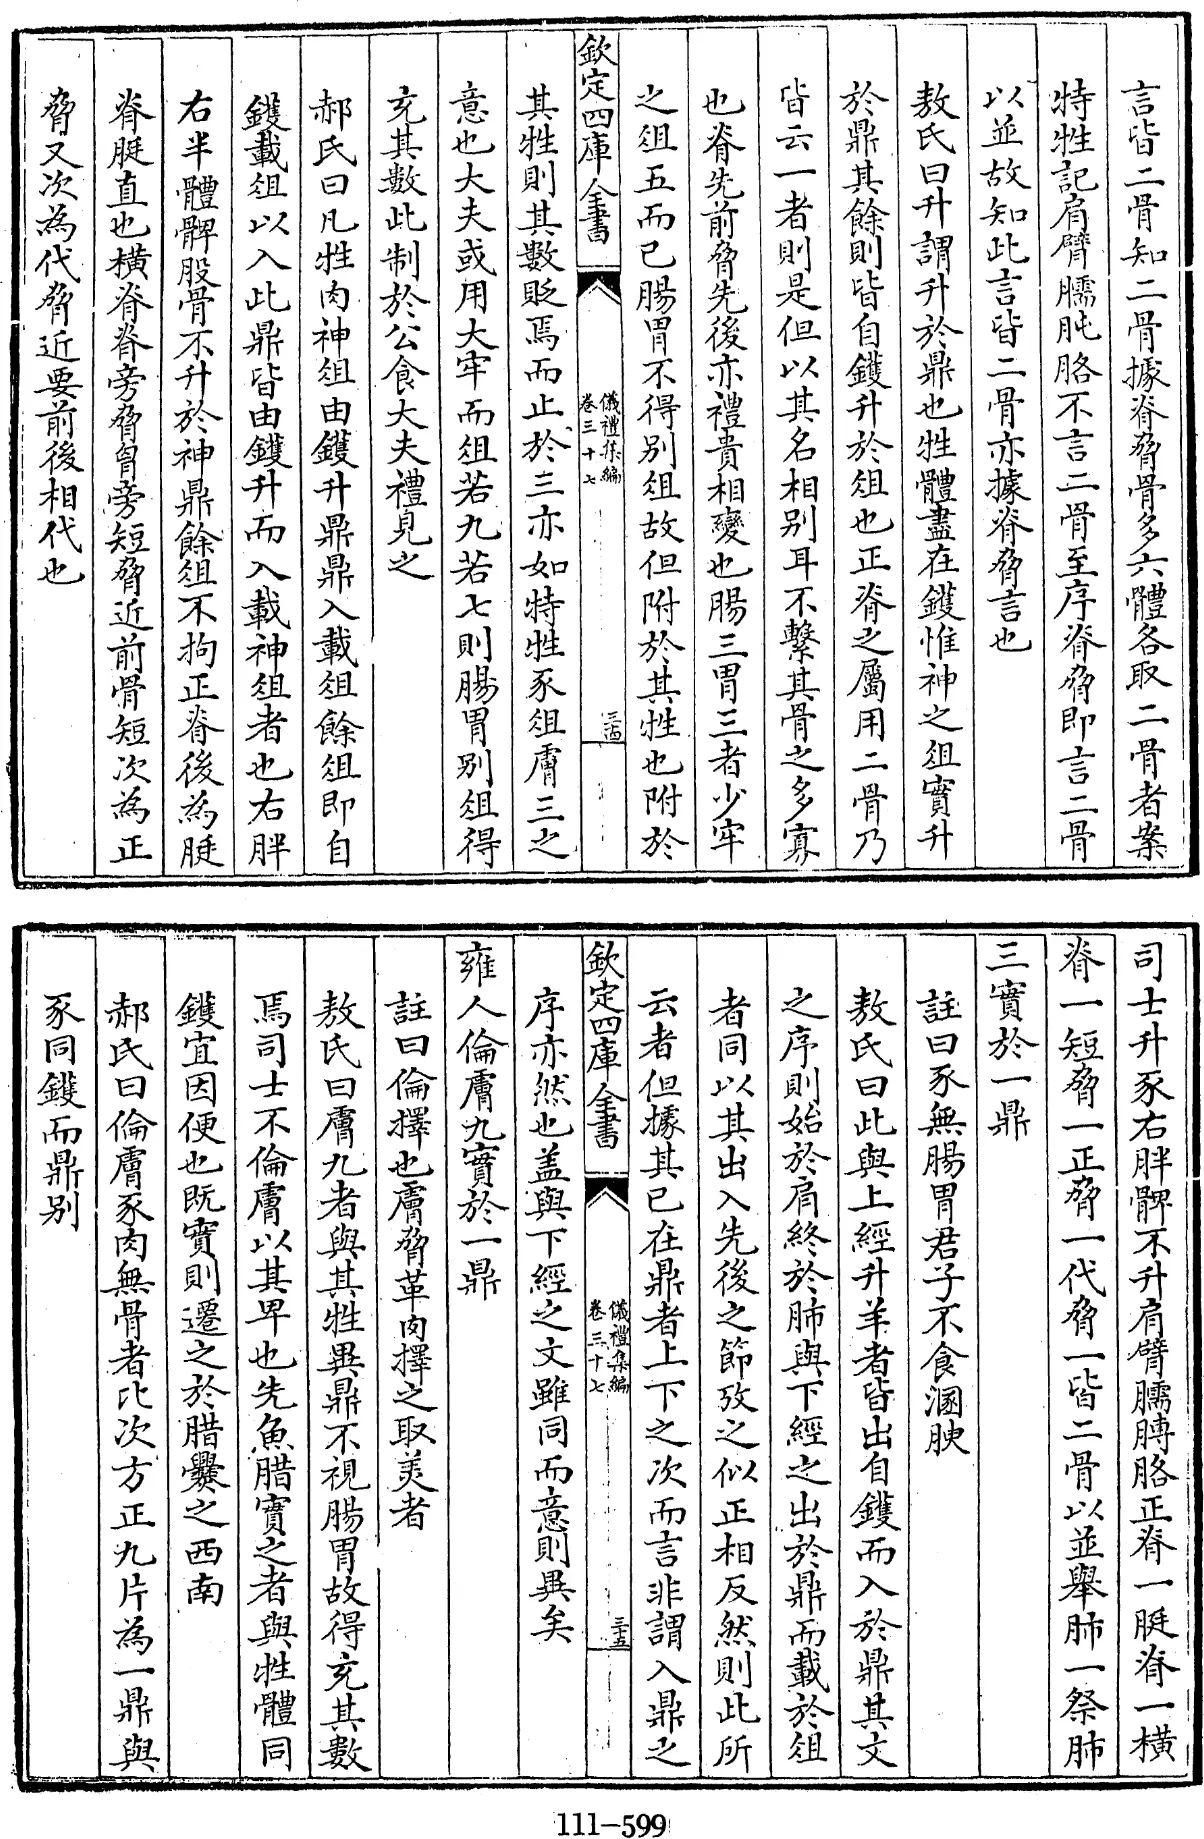 言皆二骨知二骨據脊脅骨多六體各取二骨者案
特牲記肩臂臑肫胳不言二骨至序脊脅即言二骨
以並故知此言皆二骨亦據脊脅言也
敖氏曰升謂升於鼎也牲體盡在鑊惟神之俎實升
於鼎其餘則皆自鑊升於俎也正脊之屬用二骨乃
皆云一者則是但以其名相別耳不繫其骨之多寡
也脊先前脅先後亦禮貴相變也腸三胃三者少牢
之俎五而已腸胃不得別俎故但附於其牲也附於
欽定四庫全書
儀禮集編
卷三十七
三四
其牲則其數貶焉而止於三亦如特牲豕俎膚三之
意也大夫或用大牢而俎若九若七則腸胃別俎得
充其數此制於公食大夫禮見之
郝氏曰凡牲肉神俎由鑊升鼎鼎入載俎餘俎即自
鑊載俎以入此鼎皆由鑊升而入載神俎者也右胖
右半體髀股骨不升於神鼎餘俎不拘正脊後為脡
脊脡直也橫脊脊旁脅胷旁短脅近前骨短次為正
脅又次為代脅近要前後相代也
司士升豕右胖髀不升肩臂臑膊胳正脊一脡脊一橫
脊一短脅一正脅一代脅一皆二骨以並舉肺一祭肺
三實於一鼎
註曰豕無腸胃君子不食溷腴
敖氏曰此與上經升羊者皆出自鑊而入於鼎其文
之序則始於肩終於肺與下經之出於鼎而載於俎
者同以其出入先後之節攷之似正相反然則此所
云者但據其已在鼎者上下之次而言非謂入鼎之
欽定四庫全書
儀禮集編
卷三十七
三五
序亦然也盖與下經之文雖同而意則異矣
雍人倫膚九實於一鼎
註曰倫擇也膚脅革肉擇之取美者
敖氏曰膚九者與其牲異鼎不視腸胃故得充其數
焉司士不倫膚以其卑也先魚腊實之者與牲體同
鑊宜因便也既實則遷之於腊爨之西南
郝氏曰倫膚豕肉無骨者比次方正九片為一鼎與
豕同鑊而鼎別
111-599